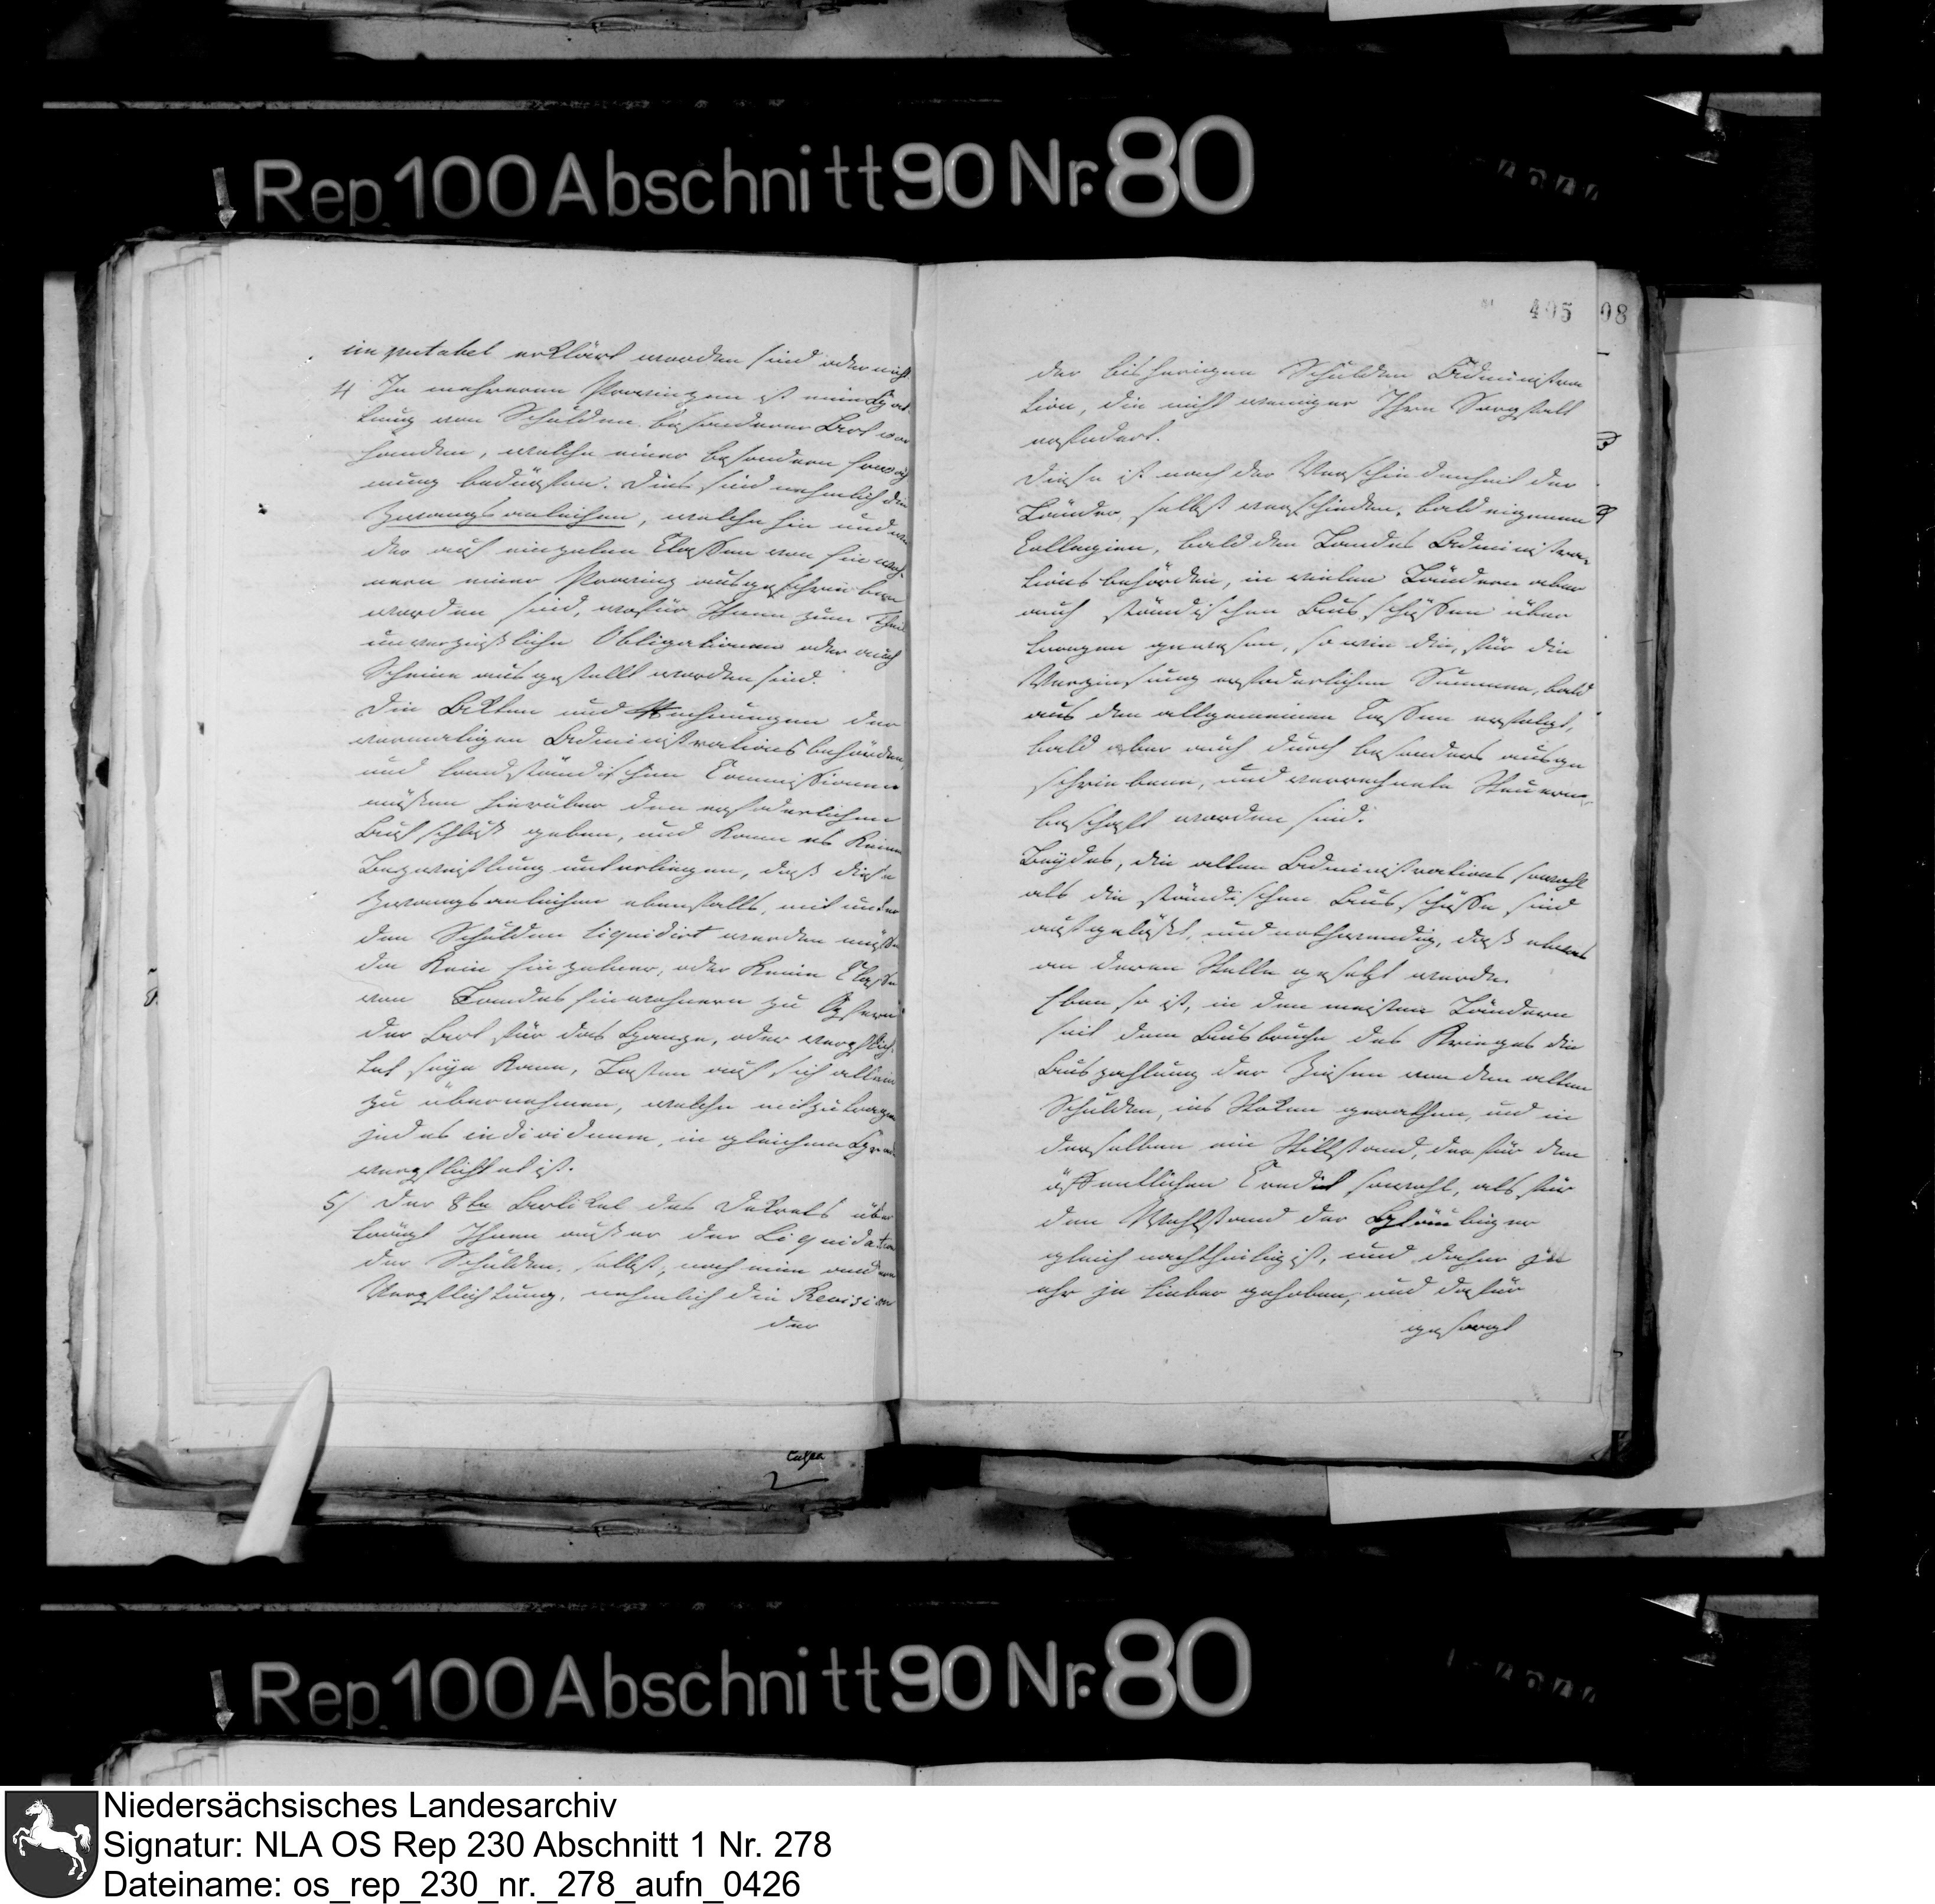 Rep 100 Abschnitt 90 Nr. 80
imputabel erklärt worden sind oder nicht
4 In mehreren Provinzen ist eine Gat
tung von Schulden besonderer Art vor
handen, welche einer besondern
bedürfen. Dies sind nehmlich die
Zwangsanleihen, welche hin und wie
der auf einzelne Classen von Einwoh
nern einer Provinz ausgeschrieben
worden sind, wofür Ihnen zum Theil
unverzinßliche Obligationen oder auch
Scheine ausgestellt worden sind.
Die Akten und Rechnungen der
vormaligen Administrationsbehörden,
und landständischen Commissionen
müßen hierüber den erfoderlichen
Aufschluß geben, und kann es keiner
Bezweiflung unterliegen, daß diese
Zwangsanleihen ebenfalls, mit unter
den Schulden liquidirt werden müssen
da kein Einzelner, oder keine Classe
von Landes Einwohnern zu Opfern
der Art für das Ganze, oder verpflich
tet seyn kann, Lasten auf sich allein
zu übernehmen, welche mitzutragen
jedes individuum, in gleichem Grade
verpflichtet ist.
5/ Der 8te Artikel des Dekrets über
trägt Ihnen außer der Liquidation
der Schulden, selbst, noch eine andere
Verpflichtung, nehmlich die Revision
der
405
08
der bisherigen Schulden Administra
tion, die nicht weniger Ihre Sorgfalt
erfodert.
Diese ist nach der Verschiedenheit der
Länder, selbst verschieden, bald eigenen
Collegien, bald den Landes Administra
tions behörden, in vielen Ländern aber
auch ständischen Ausschüssen über
tragen gewesen, so wie die, für die
Verzinsung erfoderlichen Summen, bald
aus den allgemeinen Cassen erfolgt,
bald aber auch durch besonders ausge
schriebene, und verrechnete Steuern
beschafft worden sind.
Beydes, die alten Administrations sowohl
als die ständischen Ausschüsse sind
aufgelößt, und nothwendig, daß etwas
an deren Stelle gesetzt werde.
Eben so ist, in den meisten Ländern
seit dem Ausbruche des Krieges die
Auszahlung der Zinsen von den alten
Schulden, ins Stoken gerathen, und in
derselben ein Stillstand, der für den
öffentlichen Credit sowohl, als für
den Wohlstand der Gläubiger
gleich nachtheilig ist, und daher je
ehr je lieber gehoben, und dafür
gesorgt
Rep 100 Abschnitt 90 Nr. 80
Niedersächsisches Landesarchiv
Signatur: NLA OS Rep 230 Abschnitt 1 Nr. 278
Dateiname: os_rep_230_nr._278_aufn_0426